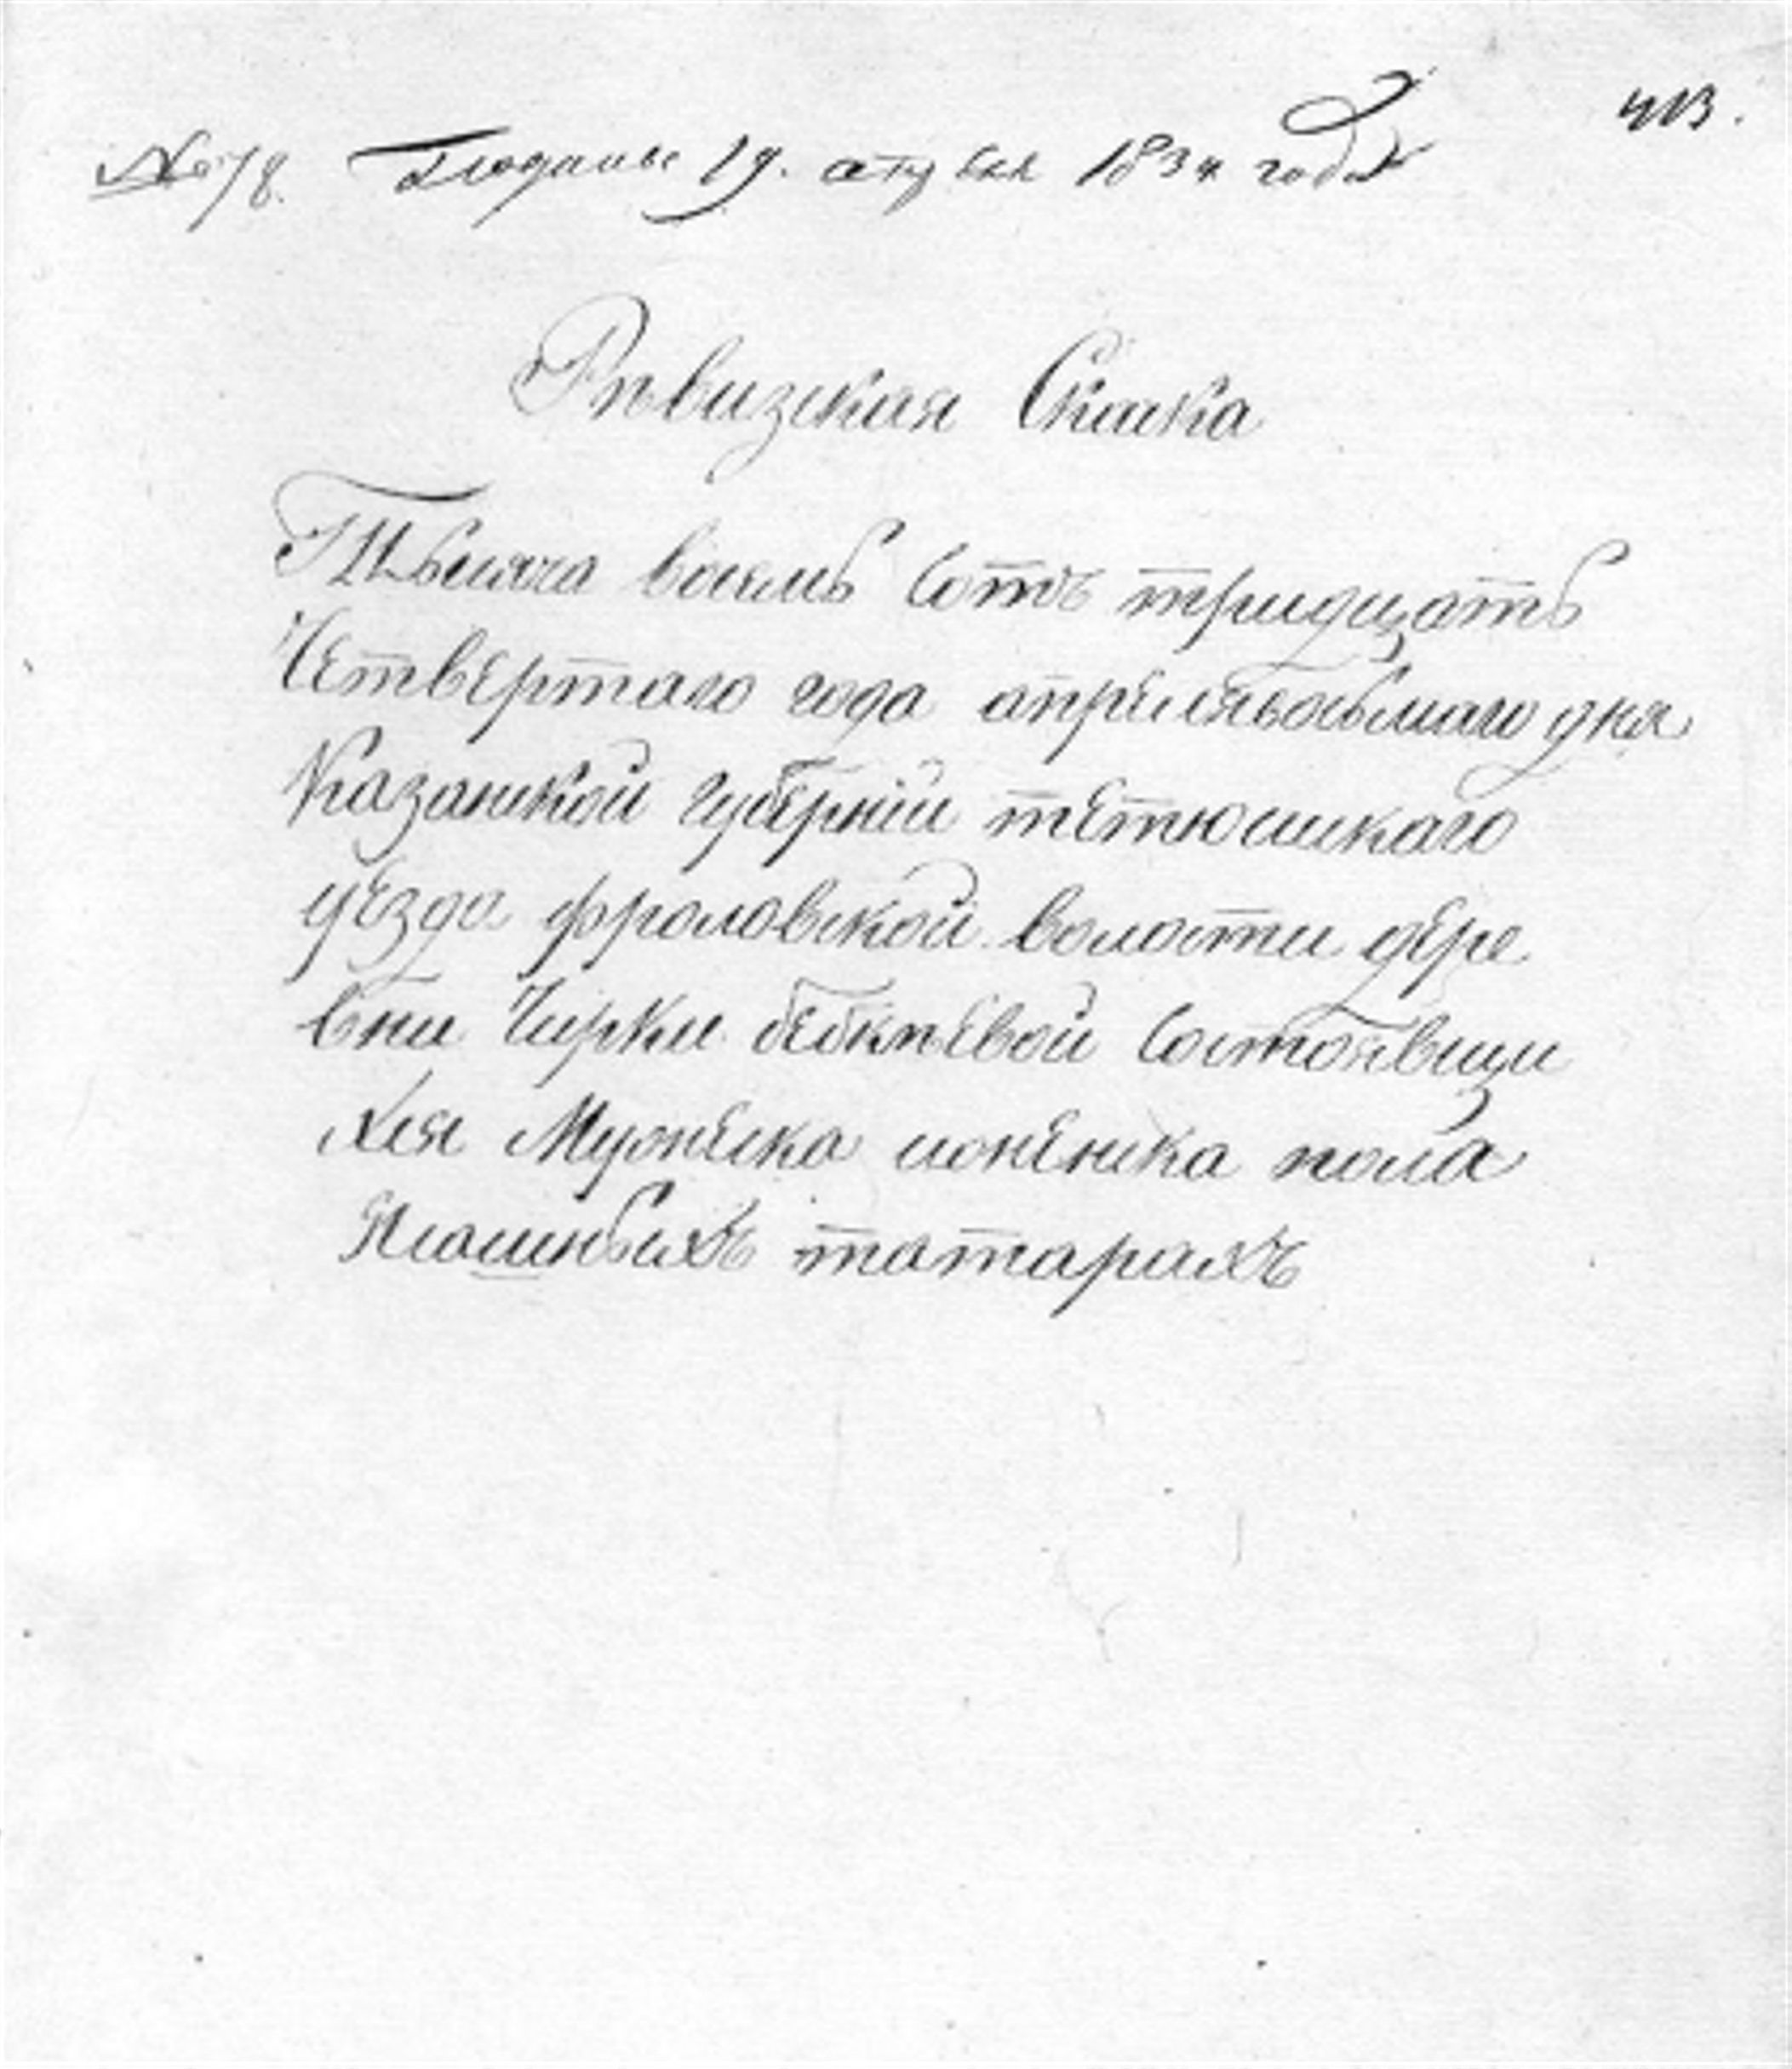 413.
№ 78. Подана 19. апреля 1834 года
Рѣвизская Скаска
Тысяча восемь сотъ тридцать
Четвертаго года апреля восьмаго дня
Казанской губерніи тетюшскаго
уезда фроловской волости дере
вни Чирки бебкѣевой состоявши
хся Мужеска и женска пола
Ясашныхъ татарахъ